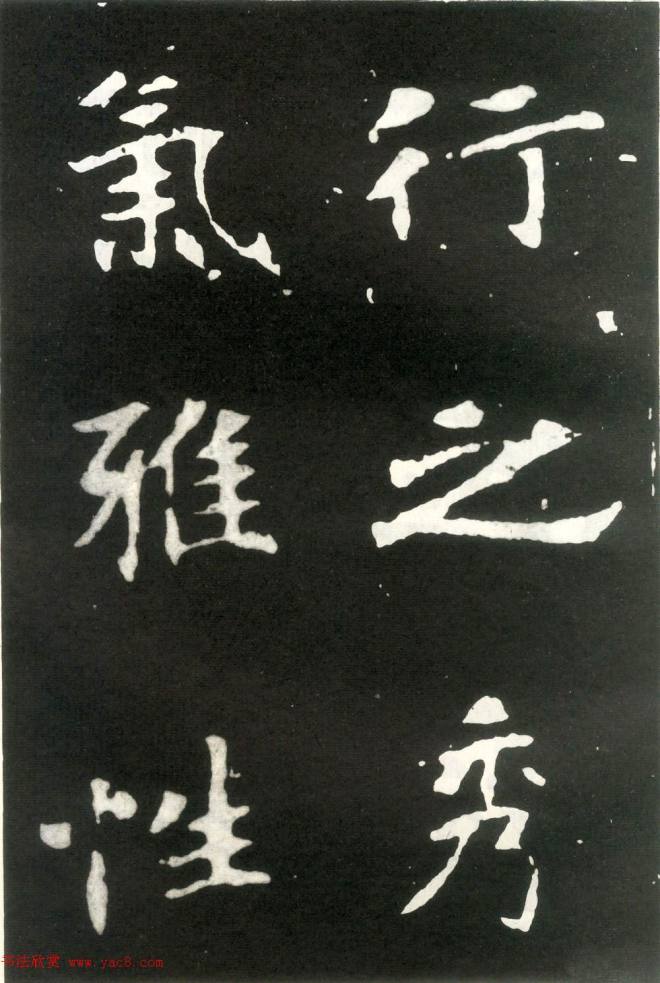 行之秀
氣雅性
书法欣赏 www.yac8.com